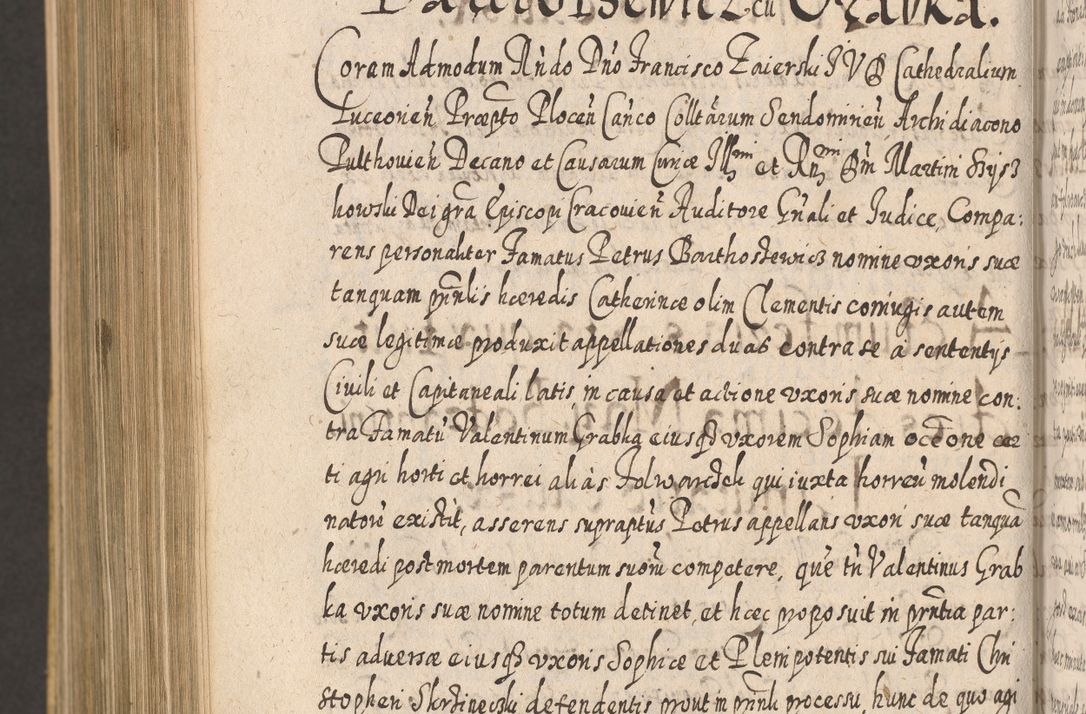 Barthosiewicz cū Grabka.
Coram Admodum Rńdo Dńo Francisco Zaierski I V D Cathedralium
Luceorień Præpto Plocēn Cańco Collt̃arum Sendomirień Archidiacono
Pulthovień Decano et Causarum Curiæ Ill̃mi et Rñmi Dm̃ Martini Szysz
kowski Dei gr̃a Episcopi Cracovień Auditore Gñali et Iudice, Compa:
rens personaliter Famatus Petrus Barthosiewicz nomine uxoris suæ
tanquam pr̃nlis hæredis Catherinæ olim Clementis coniugis autem
suæ legitimæ produxit appellationes duas contra se a sententijs
Civili et Capitaneali latis in causa et actione uxoris suæ nomine con:
tra Famatū Valentinum Grabka eiusq̃ uxorem Sophiam occõne cæ
ti agri horti et horrei aliàs Folwarczek qui iuxta horreū molendi
natorū existit, asserens supraptūs Petrus appellans uxori suæ tanquā
hæredi post mortem parentum suorū competere, quē tñ Valentinus Grab
ka uxoris suæ nomine totum detinet, et hæc proposuit in pr̃ntia par:
tis adversæ eiusq̃ uxoris Sophiæ et Plenipotentis sui Famati Chri
stopheri Skrzinecski defendentis prout in pr̃nli processu, hunc de quo agi